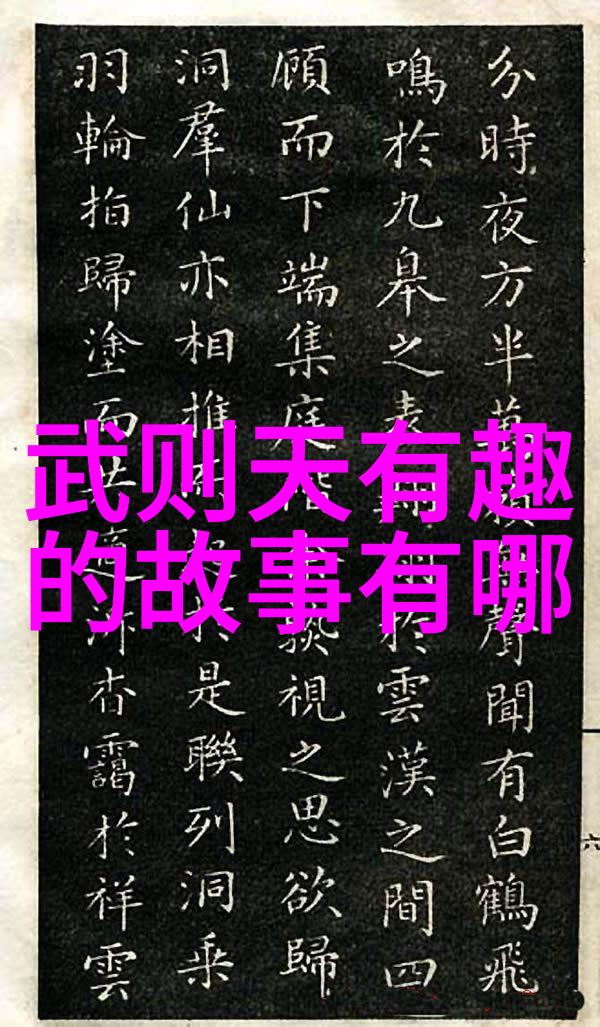 武则天有趣
的故事有哪
分時夜方半聲聞有白鶴飛
鳴於九皋之於雲漢之間四
顧而下端集庭視之思欲歸
洞羣仙亦相推是聯列洞乘
羽輪指歸塗而杳靄於祥雲